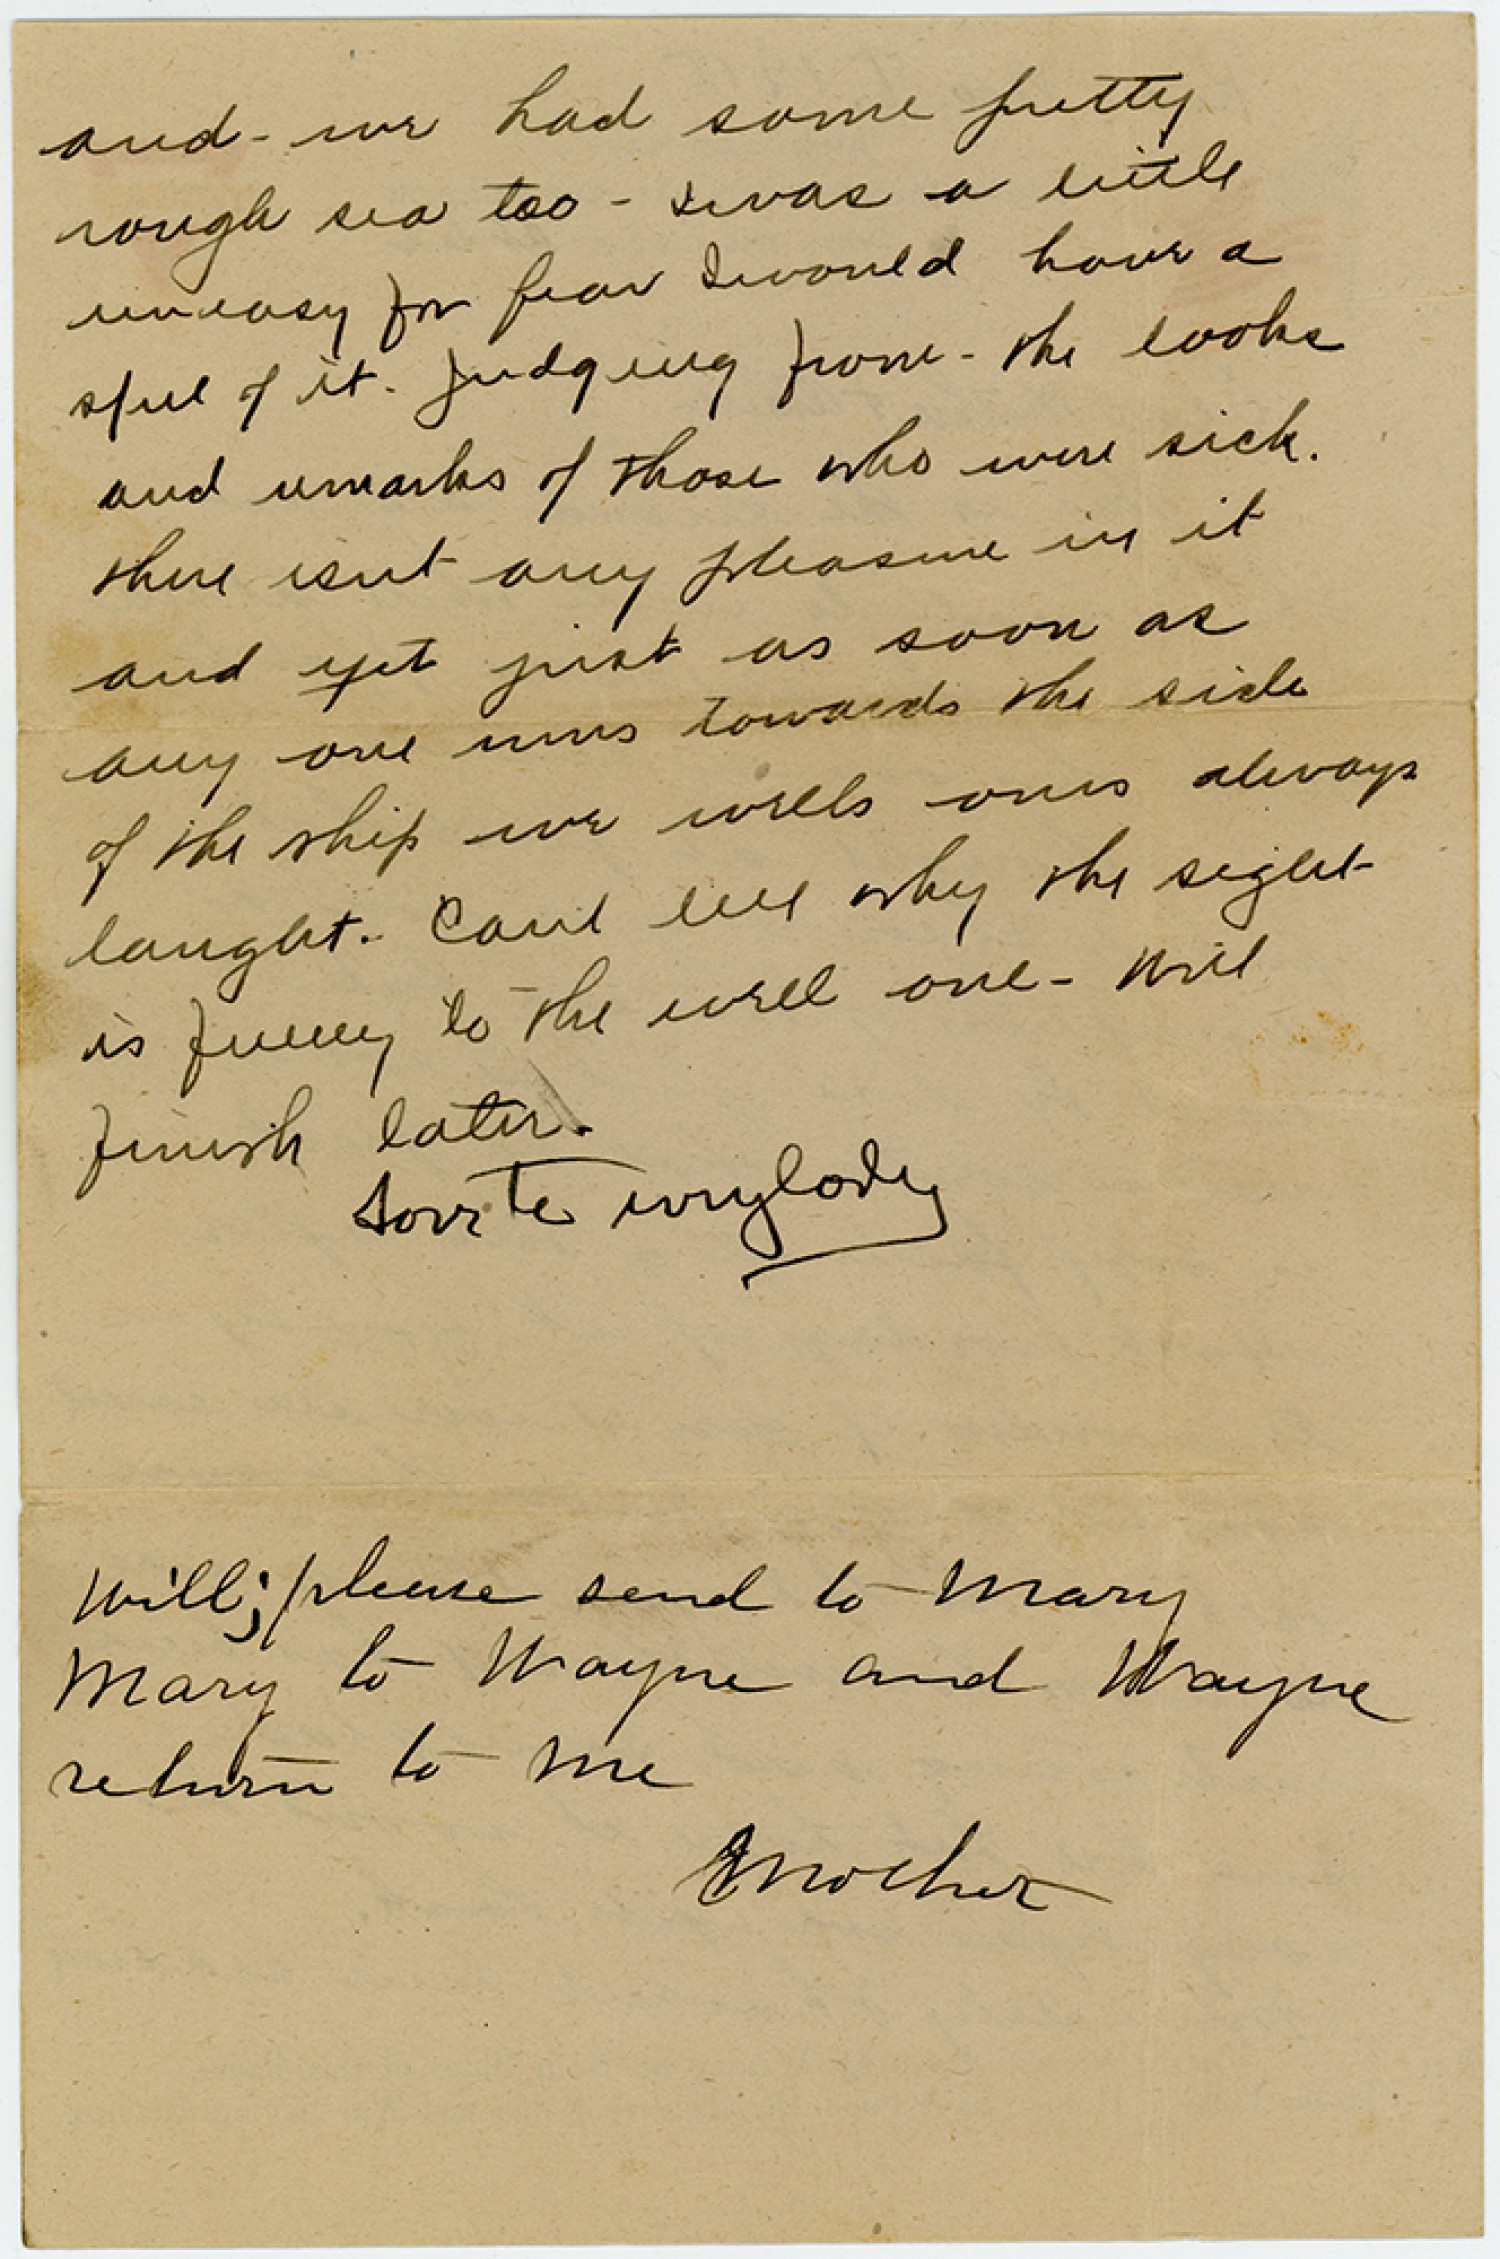 and - we had some pretty
rough sea too - I was a little
uneasy for fear I would have a
spell of it. Judging from - the looks
and remarks of those who were sick.
there isnt any pleasure in it
and yet just as soon as
any one runs towards the side
of the ship we wells ones always
laught. Cant tell why the sight
is funny to the well one - Will
finish later.
Love to everybody
Will; please send to Mary
Mary to Wayne and Wayne
return to me
Mother